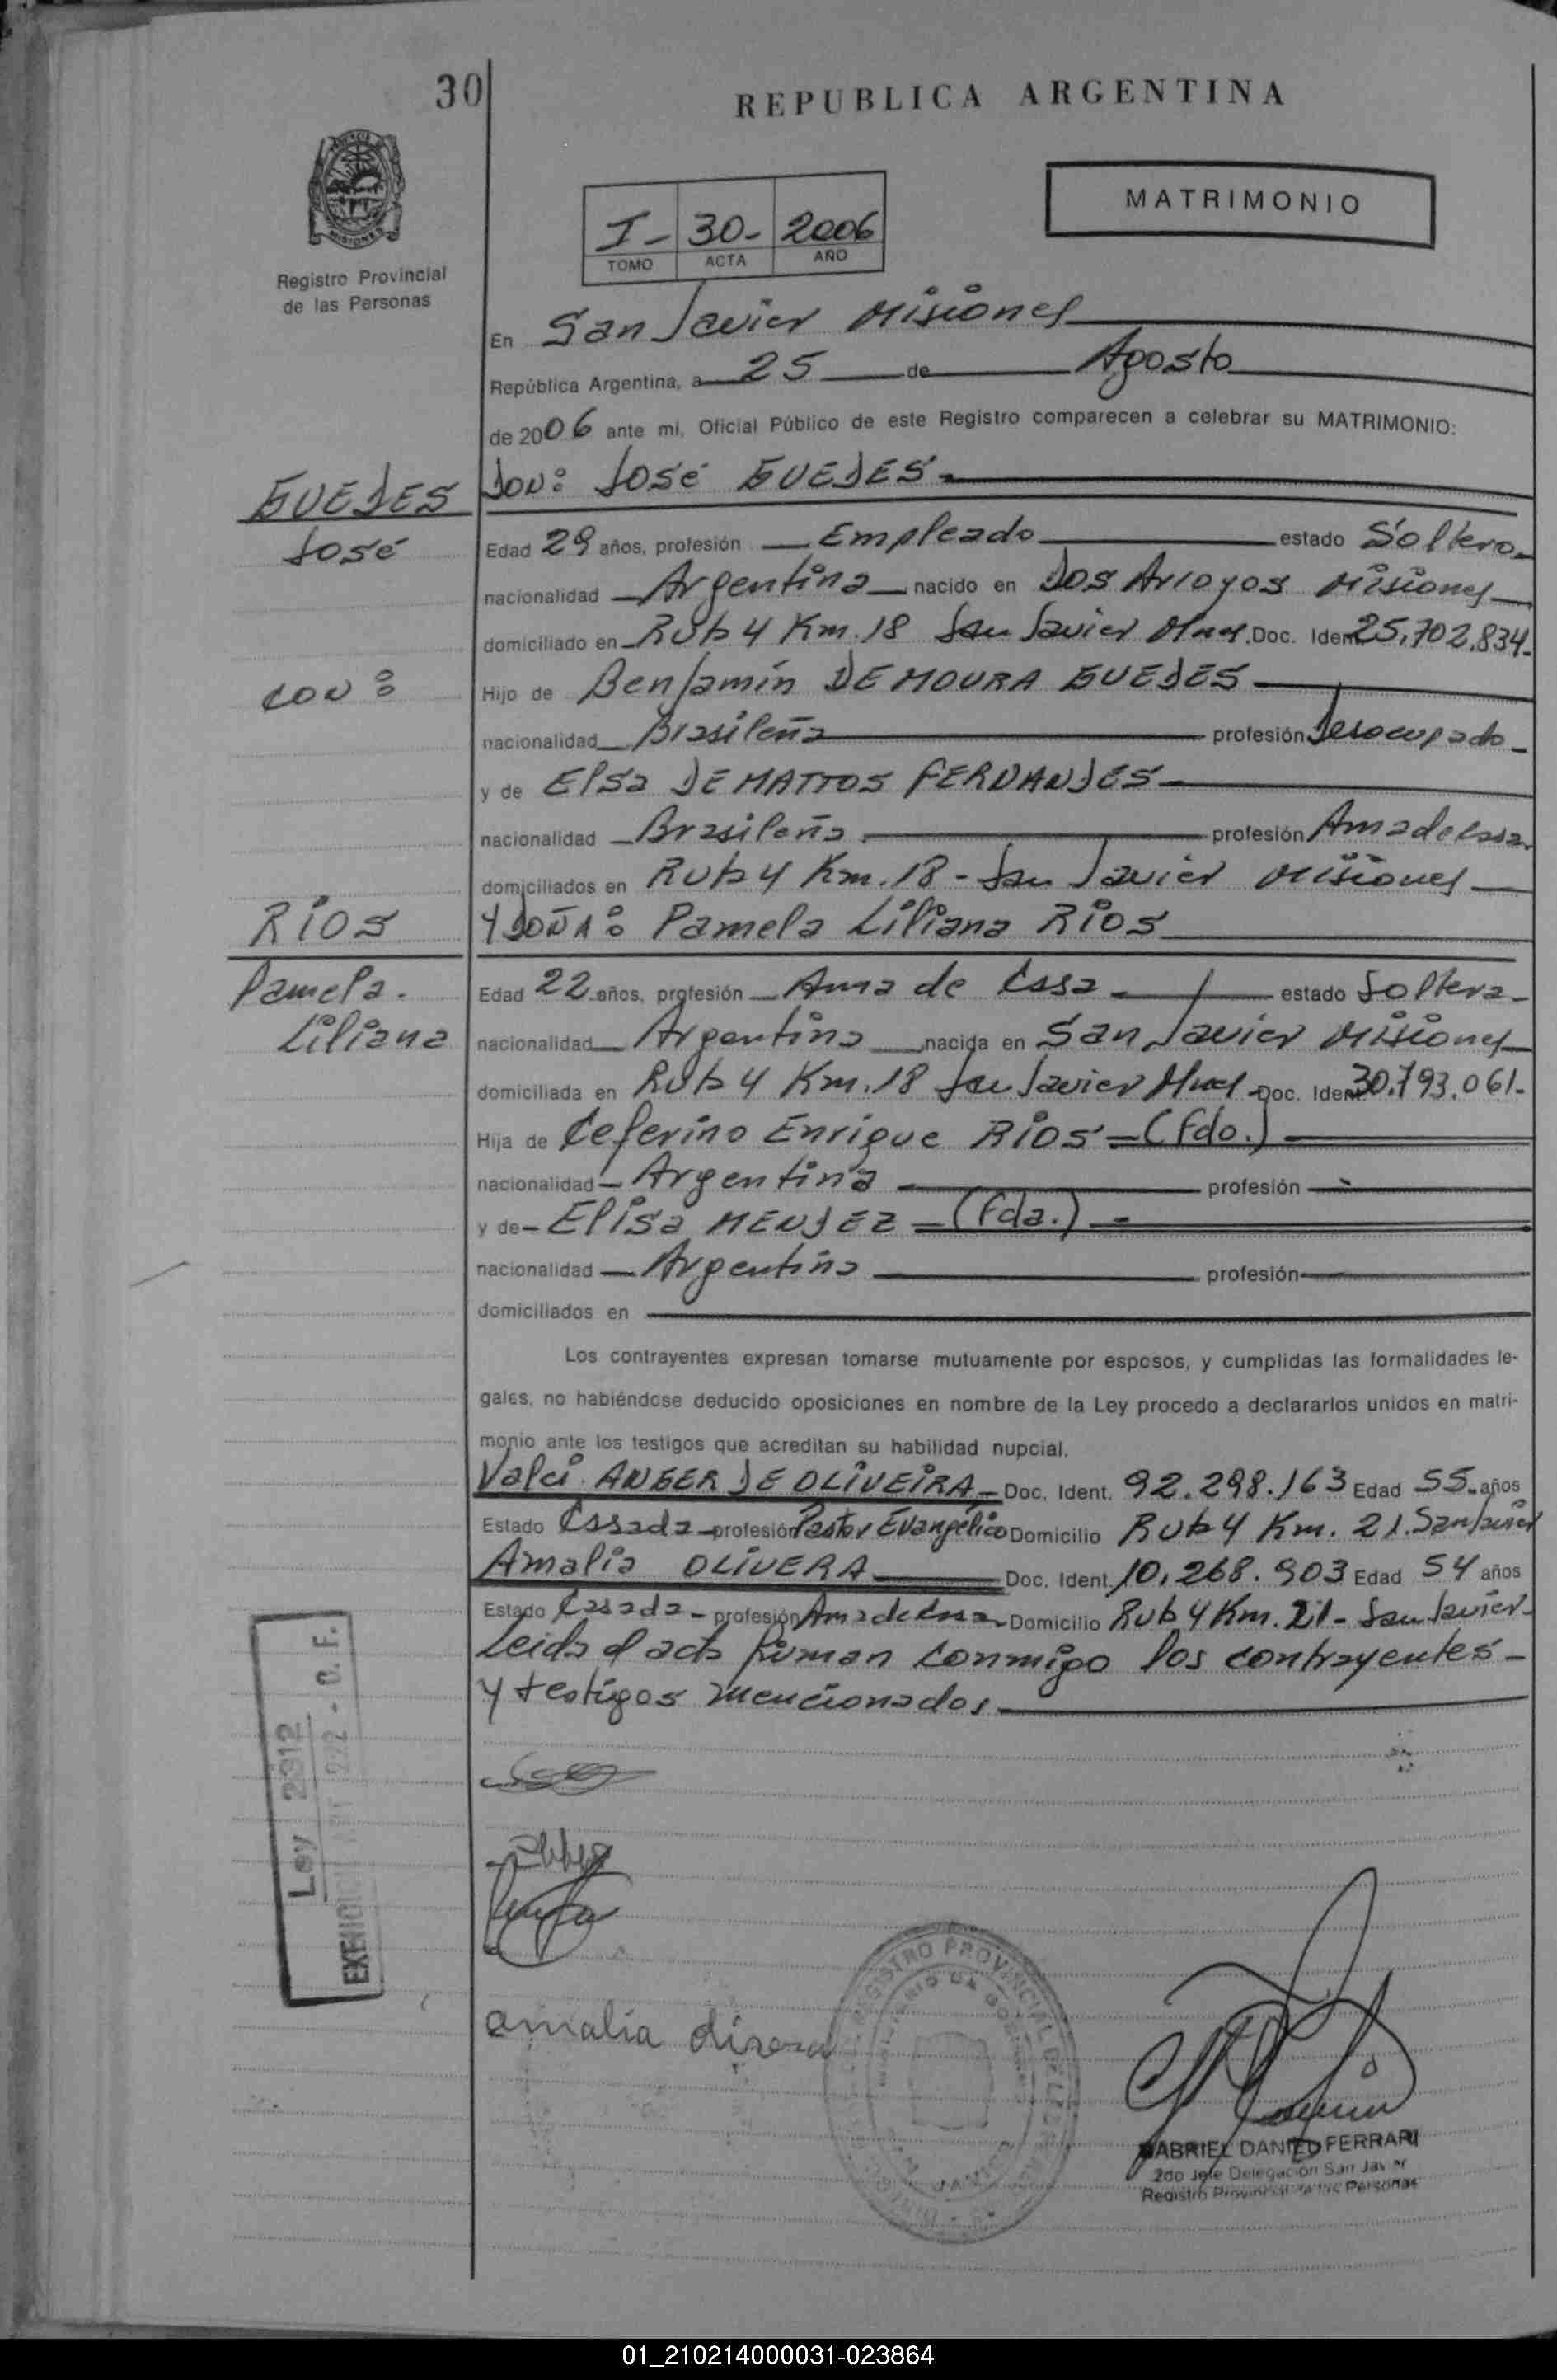 30
REPUBLICA ARGENTINA
MISIONES
Registro Provincial
de las Personas
MATRIMONIO
I- 30- 2006
TOMO ACTA AÑO
En San Javier Misiones
República Argentina, a 25 de Agosto
de 2006 ante mi, Oficial Público de este Registro comparecen a celebrar su MATRIMONIO:
GUEDES
José
DON: José GUEDES.
Edad 29 años, profesión Empleado estado Soltero
nacionalidad Argentina nacido en Dos Arroyos Misiones
domiciliado en Ruta 4 Km. 18 San Javier Mnes. Doc. Ident. 25.702.834.
con:
Hijo de Benjamín DE MOURA GUEDES
nacionalidad Brasileña profesión Desocupado
y de Elsa DE MATTOS FERNANDES
nacionalidad Brasileña profesión Ama de casa.
domiciliados en Ruta 4 Km. 18 - San Javier Misiones
RIOS
Pamela.
Liliana
Y DOÑA: Pamela Liliana RIOS
Edad 22 años, profesión Ama de Casa estado Soltera
nacionalidad Argentina nacida en San Javier Misiones
domiciliada en Ruta 4 Km. 18 San Javier Mnes Doc. Ident. 30.793.061.
Hija de Ceferino Enrique RIOS = (Fdo.)
nacionalidad Argentina profesión
y de Elisa MENDEZ = (Fda.)
nacionalidad Argentina profesión
domiciliados en
Los contrayentes expresan tomarse mutuamente por esposos, y cumplidas las formalidades le-
gales, no habiéndose deducido oposiciones en nombre de la Ley procedo a declararlos unidos en matri-
monio ante los testigos que acreditan su habilidad nupcial.
Valci ANGER DE OLIVEIRA Doc. Ident. 92.298.163 Edad 55 años
Estado Casada profesión Pastor Evangélico Domicilio Ruta 4 Km. 21. San Javier
Amalia OLIVERA Doc. Ident. 10.268.903 Edad 54 años
Estado Casada profesión Ama de casa Domicilio Ruta 4 Km. 21 - San Javier
Leida el acta firman conmigo los contrayentes
y testigos mencionados.
Ley 2312
EXENCION ART 222 - C. F.
amalia olivera
REGISTRO PROVINCIAL DE LAS PERSONAS
GABRIEL DANIEL FERRARI
2do Jefe Delegación San Javier
Registro Provincial de las Personas
01_210214000031-023864